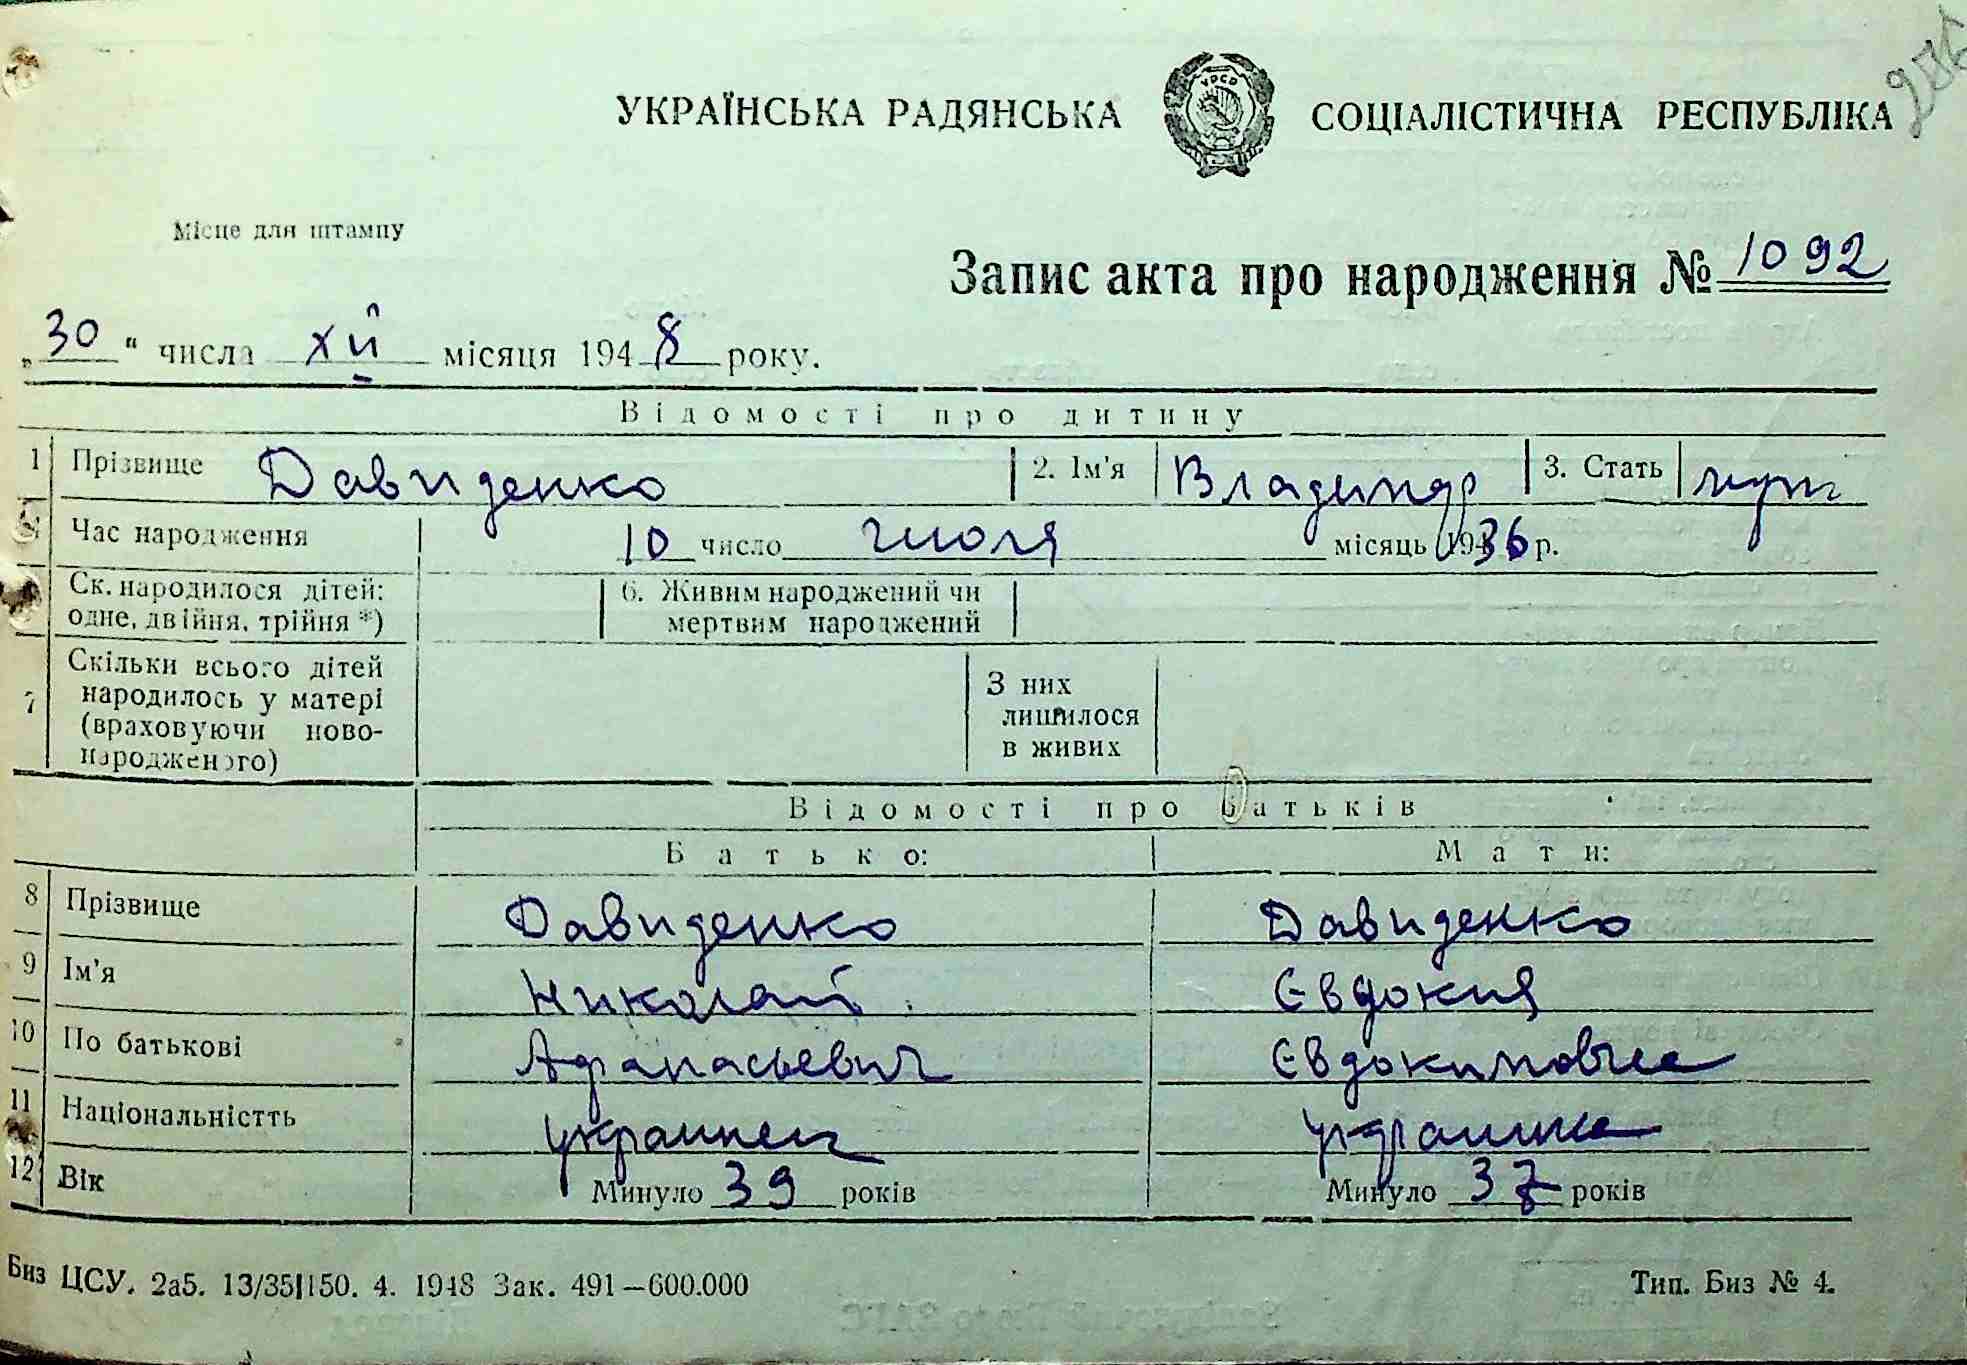 УКРАЇНСЬКА РАДЯНСЬКА СОЦІАЛІСТИЧНА РЕСПУБЛІКА
УРСР
Місце для штампу
Запис акта про народження № 1092
„30“ числа XII місяця 1948 року.
Відомості про дитину
1 Прізвище Давиденко 2. Ім'я Владимир 3. Стать муж
Час народження 10 число июля місяць 1936 р.
Ск. народилося дітей: 6. Живим народжений чи
одне, двійня, трійня *) мертвим народжений
7 Скільки всього дітей З них
народилось у матері лишилося
(враховуючи ново- в живих
народженого)
Відомості про батьків
Батько: Мати:
8 Прізвище Давиденко Давиденко
9 Ім'я Николай Євдокия
10 По батькові Афанасьевич Євдокимовна
11 Національністть украинец украинка
12 Вік Минуло 39 років Минуло 37 років
Биз ЦСУ. 2а5. 13/35|150. 4. 1948 Зак. 491—600.000 Тип. Биз № 4.